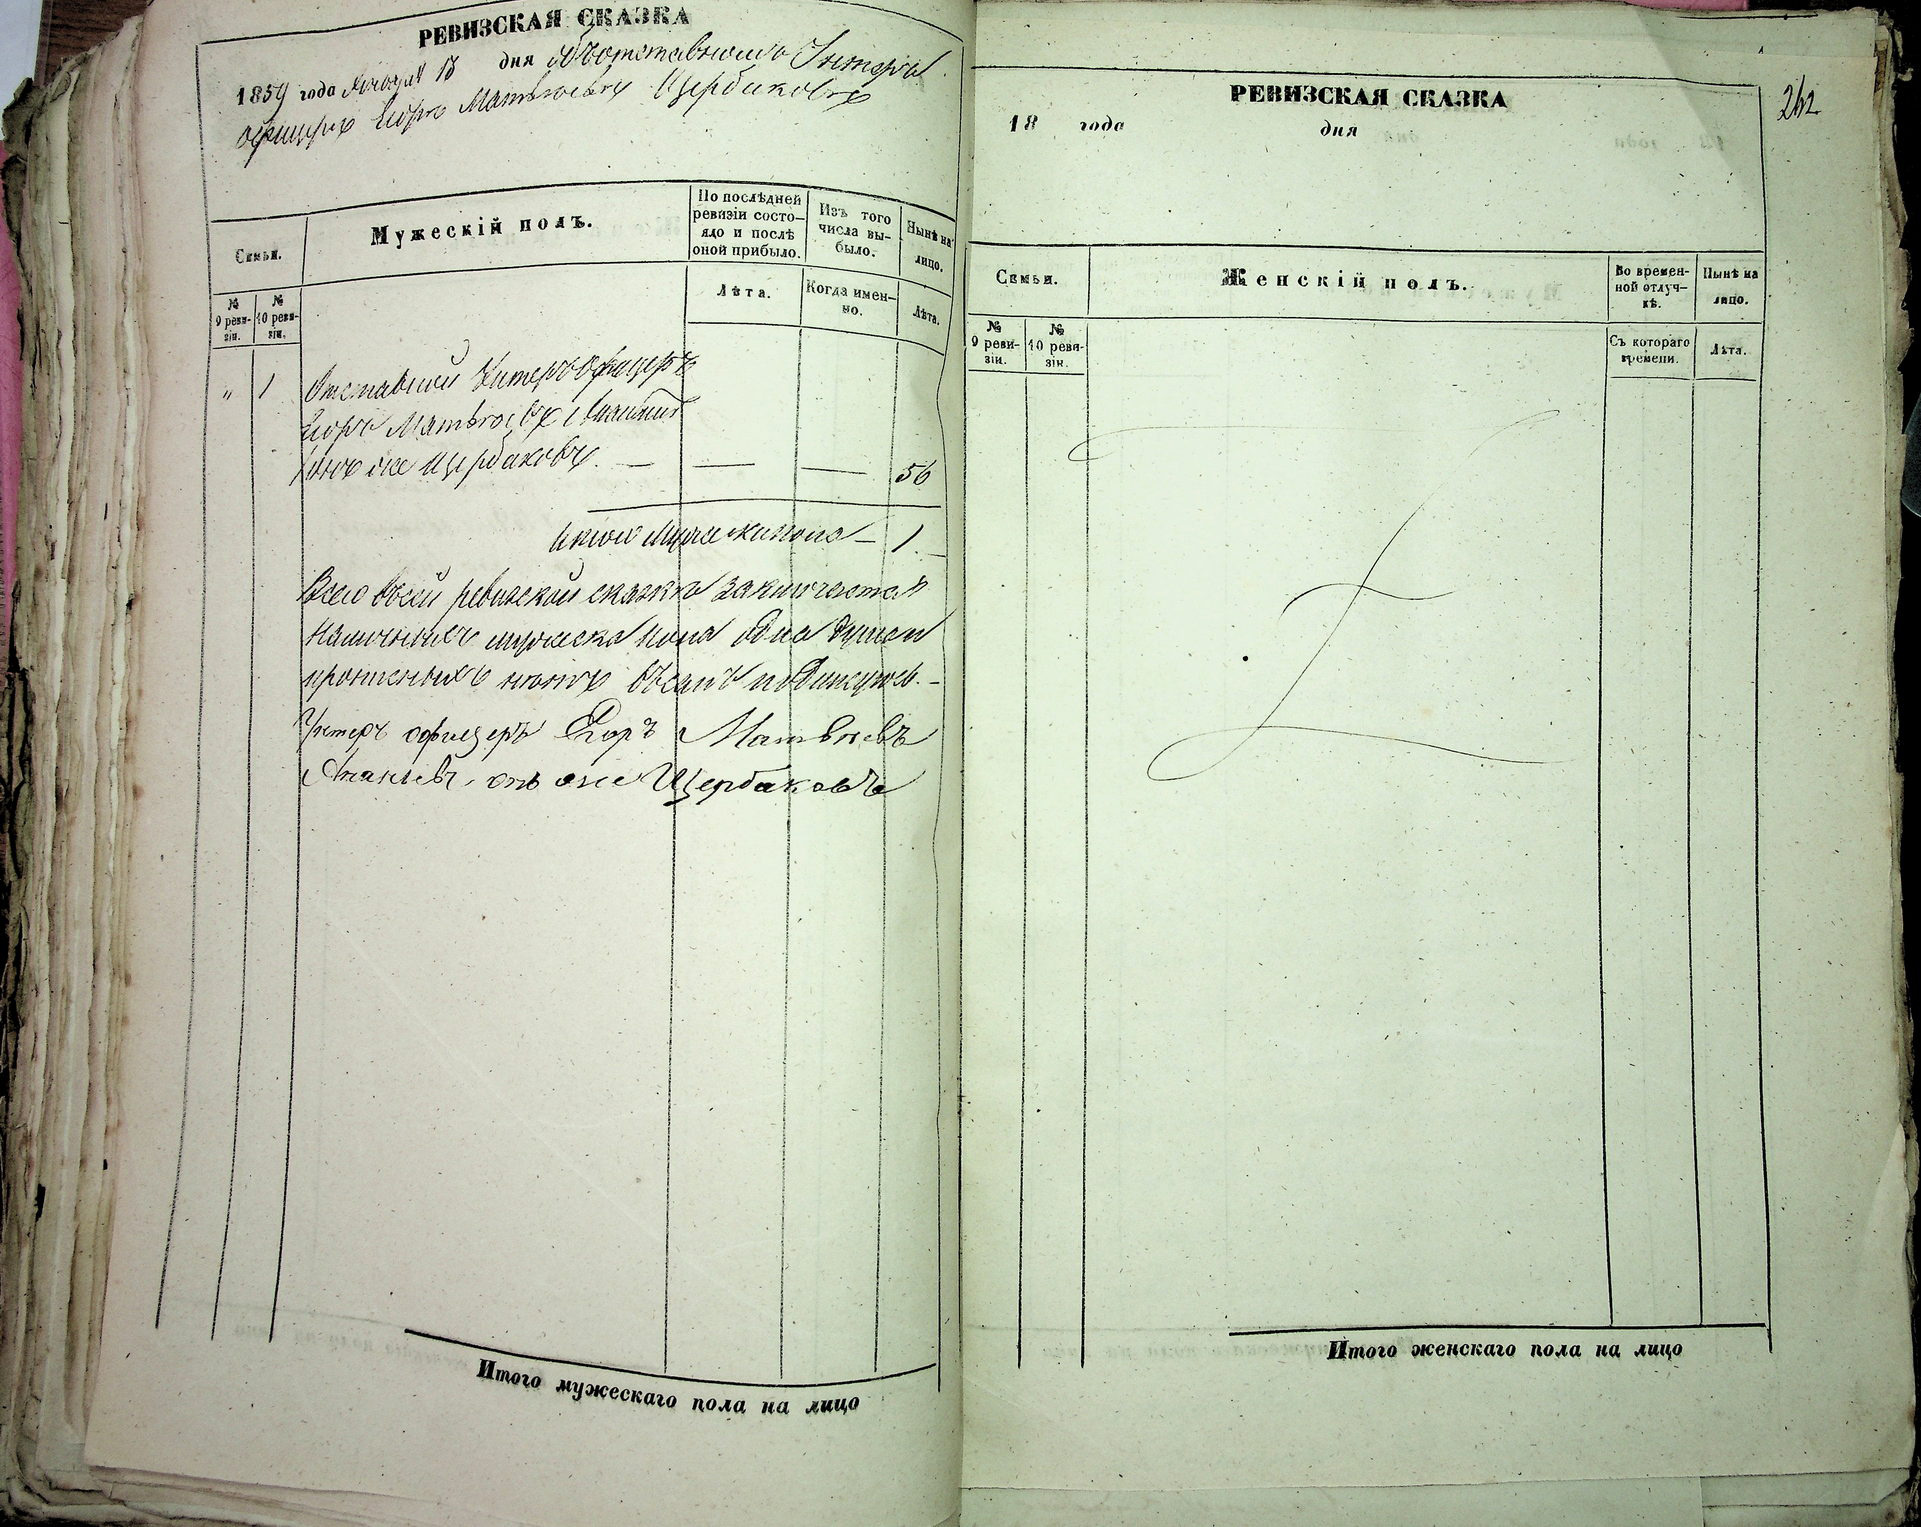 РЕВИЗСКАЯ СКАЗКА
1859 года дня Объ отставномъ Унтеръ
офицере Егоре Матвѣевѣ Щербаковѣ
Семьи.
Мужескій полъ.
По послѣдней ревизіи состо-
яло и послѣ оной прибыло.
Изъ того числа вы-
было.
Нынѣ на лицо.
№ 9 реви-
зіи.
№ 10 реви-
зіи.
Лѣта.
Когда имен-
но.
Лѣта.
" 1 Отставной Унтеръ Офицеръ
Егоръ Матвѣевъ Ананьевъ
онъ же Щербаковъ. — — — 56
Итого Мужеска пола — 1 —
Всего въ сей ревизской сказкѣ заключается
наличныхъ мужеска пола одна душа
въ семъ подпишусь. —
Унтеръ офицеръ Егоръ Матвѣевъ
Ананьевъ, онъ же Щербаковъ
Итого мужескаго пола на лицо
262
РЕВИЗСКАЯ СКАЗКА
18 года дня
Семьи.
Женскій полъ.
Во времен-
ной отлуч-
кѣ.
Нынѣ на лицо.
№ 9 реви-
зіи.
№ 10 реви-
зіи.
Съ котораго времени.
Лѣта.
Итого женскаго пола на лицо